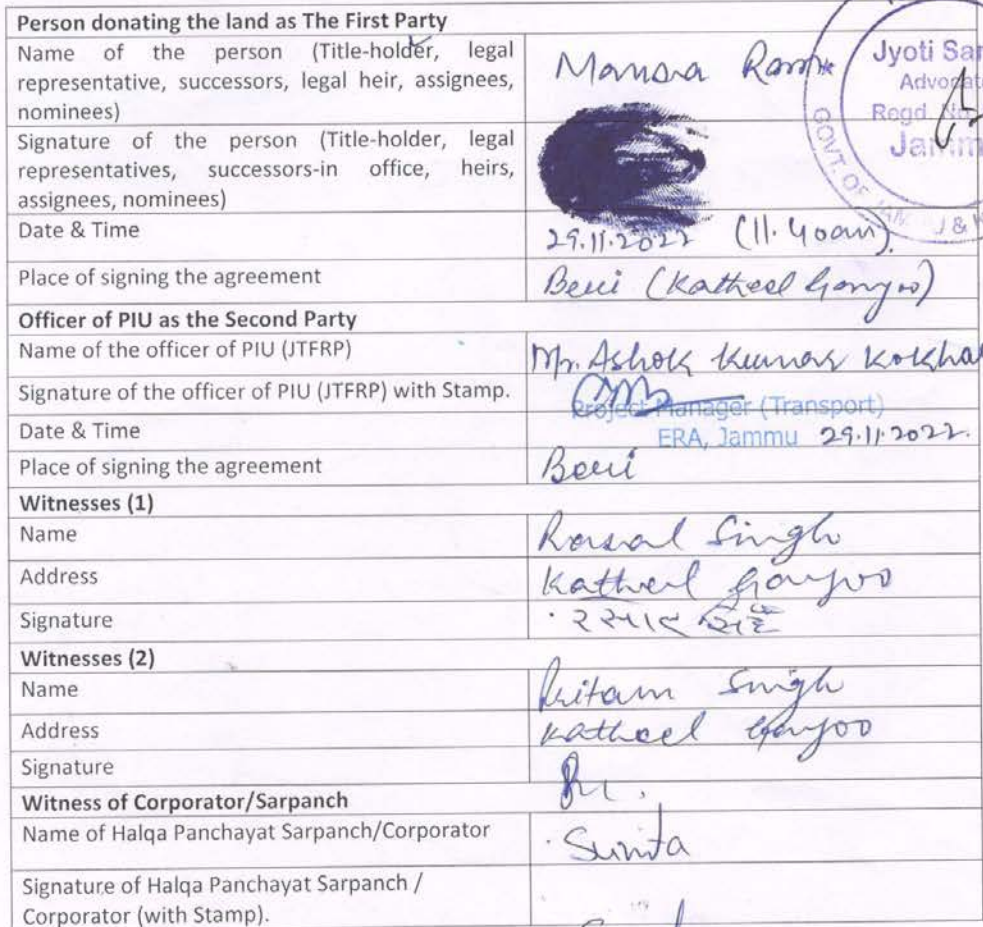 Person donating the land as The First Party
Name of the person (Title-holder, legal
representative, successors, legal heir, assignees,
nominees)
Mansa Ram
Jyoti
Regd. No.
GOVT. OF
Signature of the person (Title-holder, legal
representatives, successors-in office, heirs,
assignees, nominees)
Date & Time
29.11.2022 (11.40am)
Place of signing the agreement
Beri (Katheel Ganjoo)
Officer of PIU as the Second Party
Name of the officer of PIU (JTFRP)
Mr. Ashok Kumar
Signature of the officer of PIU (JTFRP) with Stamp.
Project Manager (Transport)
ERA, Jammu 29.11.2022.
Date & Time
Place of signing the agreement
Beri
Witnesses (1)
Name
Rasal Singh
Address
Katheel Ganjoo
Signature
Witnesses (2)
Name
Pritam Singh
Address
Katheel Ganjoo
Signature
Witness of Corporator/Sarpanch
Name of Halqa Panchayat Sarpanch/Corporator
Sunita
Signature of Halqa Panchayat Sarpanch /
Corporator (with Stamp).